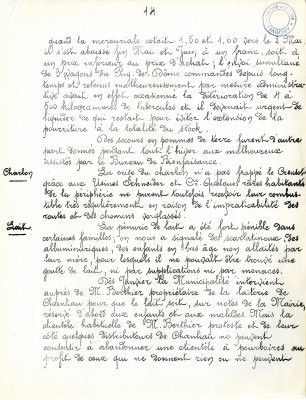 14
quand la mercuriale était 1,50 et 1,60 vers le 2 Mai.
Il s'est abaissé fin Mai et Juin à un franc, soit à
un prix inférieur au prix d'Achat; l'envoi simultané
de 3 Wagons du Puy-de-Dôme commandés depuis long-
temps et retenus malheureusement par mesure administra-
tive avait en effet occasionné la détérioration de 7 à
800 kilogrammes de tubercules et il devenait urgent de
liquider ce qui restait pour éviter l'extension de la
pourriture à la totalité du stock.
Des secours en pommes de terre furent d'autre
part donnés pendant tout l'hiver aux malheureux
assistés par le Bureau de Bienfaisance.
Charbon La crise du charbon n'a pas frappé le Creusot
grâce aux Usines Schneider et Cie. Quelques rares habitants
de la périphérie ne purent toutefois recevoir leur combus-
tible très régulièrement en raison de l'impraticabilité des
routes et des chemins verglassés.
Lait. La pénurie de lait a été fort pénible dans
certaines familles; on nous a signalé des vieillards, des
albuminuriques, des enfants en bas âge non allaités par
leur mère, pour lesquels il ne pouvait être trouvé une
goutte de lait, ni par supplications ni par menaces.
Dès Janvier la Municipalité intervient
auprès de M. Berthier propriétaire de la laiterie de
Chanliau pour que le lait soit, sur notes de la Mairie,
réservé d'abord aux enfants et aux malades. Mais la
clientèle habituelle de M. Berthier proteste et de leur
côté quelques distributeurs de Chanliau ne peuvent
consentir à abandonner une clientèle à pourboires au
profit de ceux qui ne donnent rien ou ne peuvent